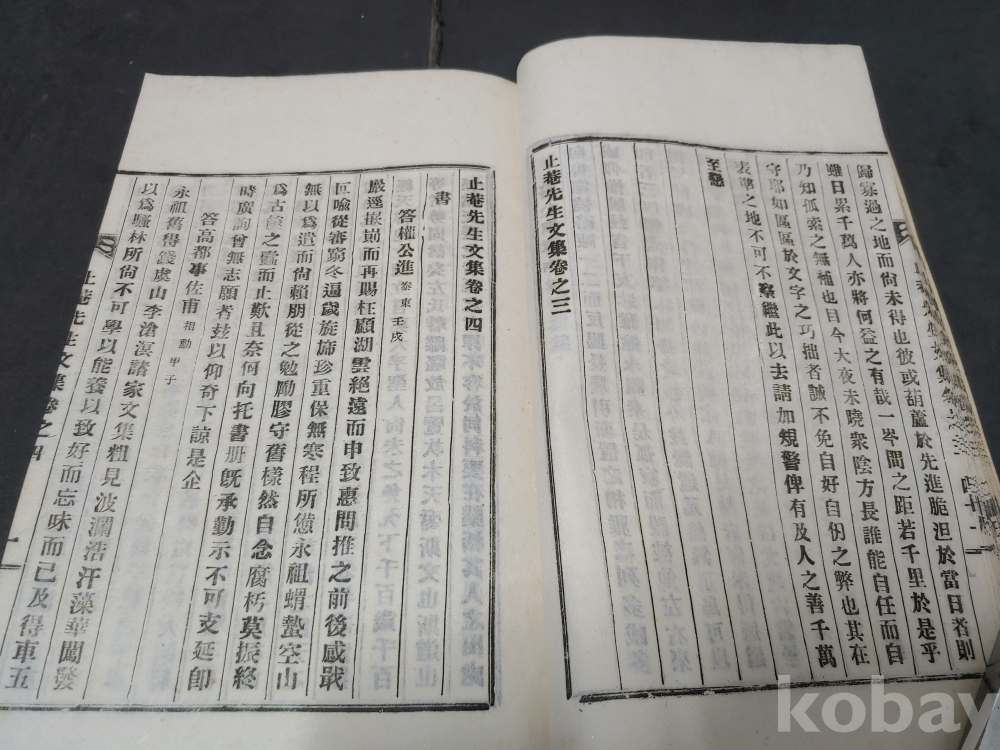 歸寡過之地而尙未得也彼或葫蘆於先進脆沮於當日者則
雖日累千萬人亦將何益之有哉一岑間之距若千里於是乎
乃知孤索之無補也目今大夜未曉衆陰方長誰能自任而自
守耶如區區於文字之巧拙者誠不免自好自份之弊也其在
表準之地不可不察繼此以去請加規警俾有及人之善千萬
至懇
止菴先生文集卷之三
四十一
止菴先生文集卷之四
書
答權公進 泰東 壬戌
嚴逕嵌崱而再賜枉顧湖雲絕遠而申致惠問推之前後感戢
叵喩從審窮冬逼歲旆旆珍重保無寒程所憊永祖蝟蟄空山
無以爲遣而尙賴朋從之勉勵膠守舊樣然自念腐朽莫振終
爲古篋之蠹而止歎且奈何向托書册旣承勤示不可支延卽
時廣詢曾無志願者玆以仰奇下諒是企
答高都事佐甫 相勳 甲子
永祖舊得錢虞山李滄溟諸家文集粗見波瀾浩汗藻華闖發
以爲騷林所尙不可學以能養以致好而忘味而已及得車五
止菴先生文集卷之四
一
kobay